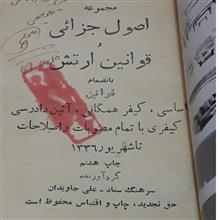 مجموعه
اصول جزائی
و
قوانین ارتش
بانضمام
قوانین
اساسی، کیفر همگانی، آئین دادرسی
کیفری با تمام مصوبات و اصلاحات
تا شهریور ۱۳۳۶
چاپ هشتم
گردآورنده
سرهنگ ستاد - علی جاویدان
حق تجدید، چاپ و اقتباس محفوظ است